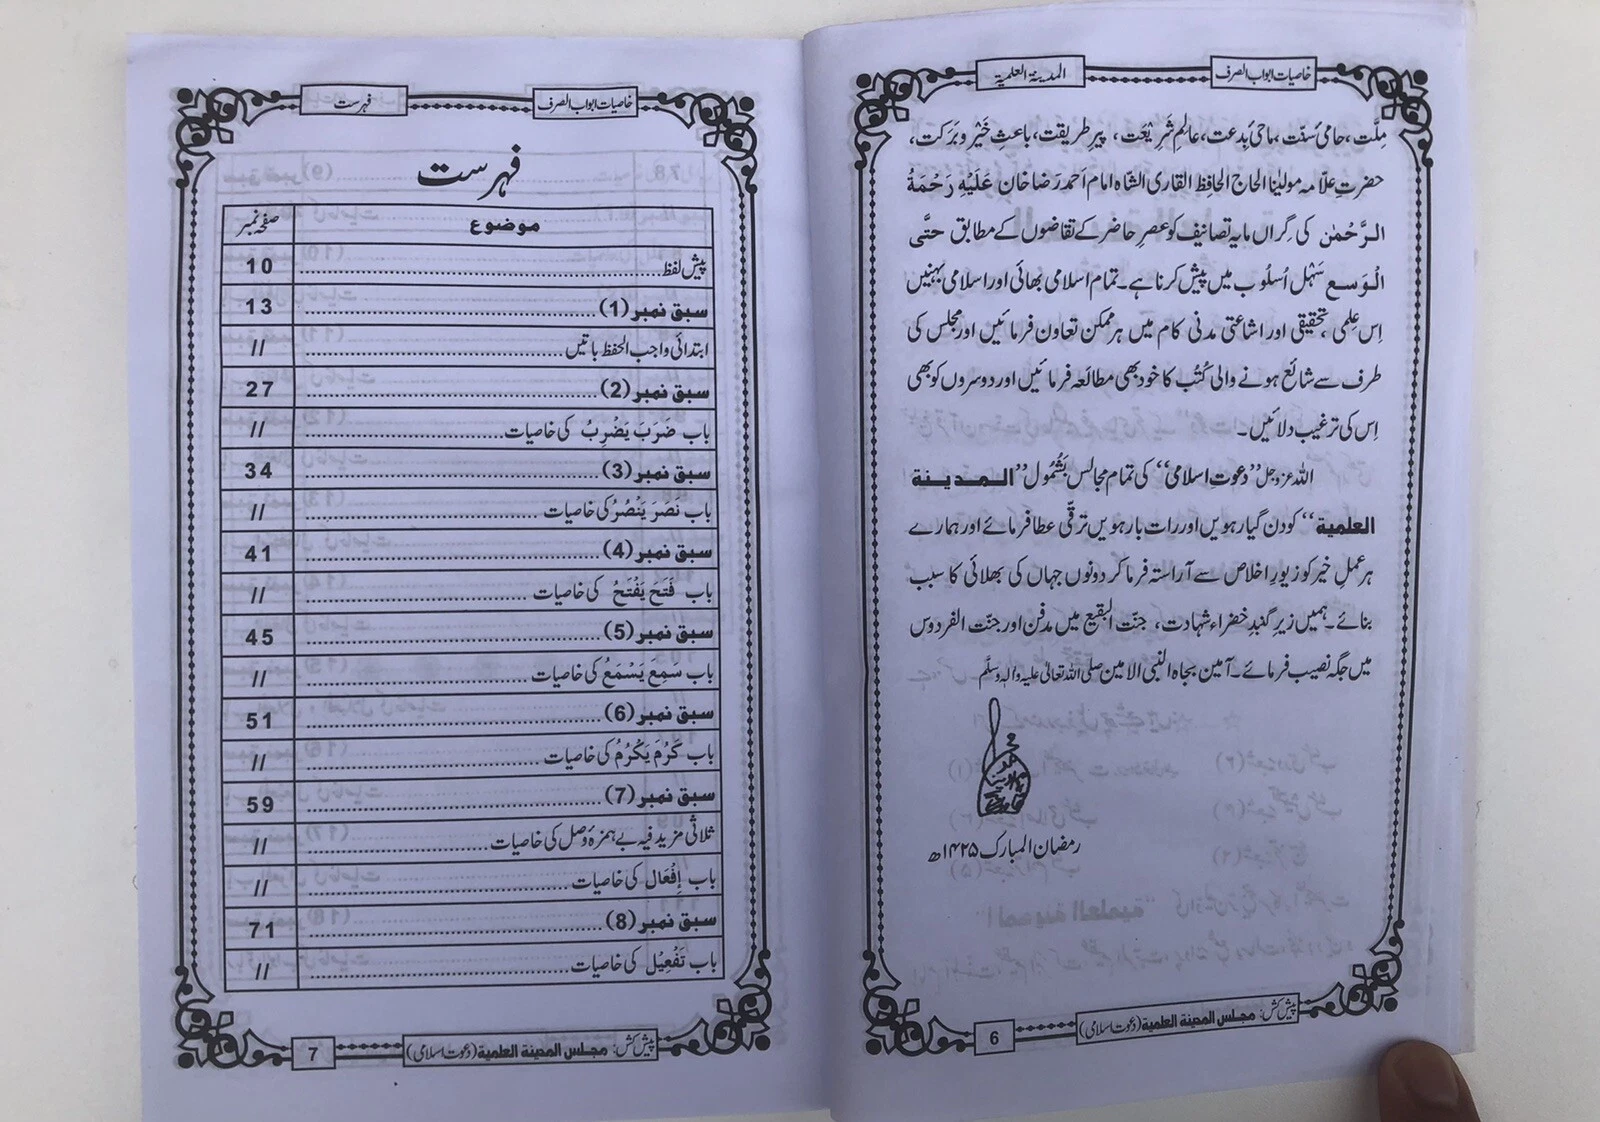 خاصیات ابواب الصرف
المدینۃ العلمیۃ
مِلَّت، حامیٔ سنّت، ماحیٔ بِدعت، عالِمِ شَرِیْعَت، پیرِ طریقت، باعثِ خَیْر و بَرَکت،
حضرتِ علّامہ مولیٰنا الحاج الحافِظ القاری الشّاہ امام اَحمد رَضا خان عَلَیْہِ رَحْمَۃُ
الرَّحْمٰن کی گِراں مایہ تصانیف کو عصرِ حاضر کے تقاضوں کے مطابق حتَّی
الْوَسع سَہْل اُسلُوب میں پیش کرنا ہے۔ تمام اسلامی بھائی اور اسلامی بہنیں
اِس عِلمی، تحقیقی اور اشاعتی مدنی کام میں ہر ممکن تعاون فرمائیں اور مجلس کی
طرف سے شائع ہونے والی کُتُب کا خود بھی مطالَعہ فرمائیں اور دوسروں کو بھی
اِس کی ترغیب دلائیں۔
اللہ عزوجل ’’دعوتِ اسلامی‘‘ کی تمام مجالس بَشُمُول ’’المدینۃ
العلمیۃ‘‘ کو دن گیارہویں اور رات بارہویں ترقّی عطا فرمائے اور ہمارے
ہر عملِ خیر کو زیورِ اخلاص سے آراستہ فرما کر دونوں جہاں کی بھلائی کا سبب
بنائے۔ ہمیں زیرِ گنبدِ خضراء شہادت، جنّت البقیع میں مدفن اور جنّت الفردوس
میں جگہ نصیب فرمائے۔ آمین بجاہ النبی الامین صلی اللہ تعالیٰ علیہ واٰلہٖ وسلَّم
رمضان المبارک ۱۴۲۵ھ
پیش کش: مجلس المدینۃ العلمیۃ (دعوت اسلامی)
6
خاصیات ابواب الصرف
فہرست
فہرست
موضوع صفحہ نمبر
پیش لفظ 10
سبق نمبر (1) 13
ابتدائی واجب الحفظ باتیں //
سبق نمبر (2) 27
باب ضَرَبَ یَضْرِبُ کی خاصیات //
سبق نمبر (3) 34
باب نَصَرَ یَنْصُرُ کی خاصیات //
سبق نمبر (4) 41
باب فَتَحَ یَفْتَحُ کی خاصیات //
سبق نمبر (5) 45
باب سَمِعَ یَسْمَعُ کی خاصیات //
سبق نمبر (6) 51
باب کَرُمَ یَکْرُمُ کی خاصیات //
سبق نمبر (7) 59
ثلاثی مزید فیہ بے ہمزۂ وصل کی خاصیات //
باب اِفْعَال کی خاصیات //
سبق نمبر (8) 71
باب تَفْعِیْل کی خاصیات //
پیش کش: مجلس المدینۃ العلمیۃ (دعوت اسلامی)
7